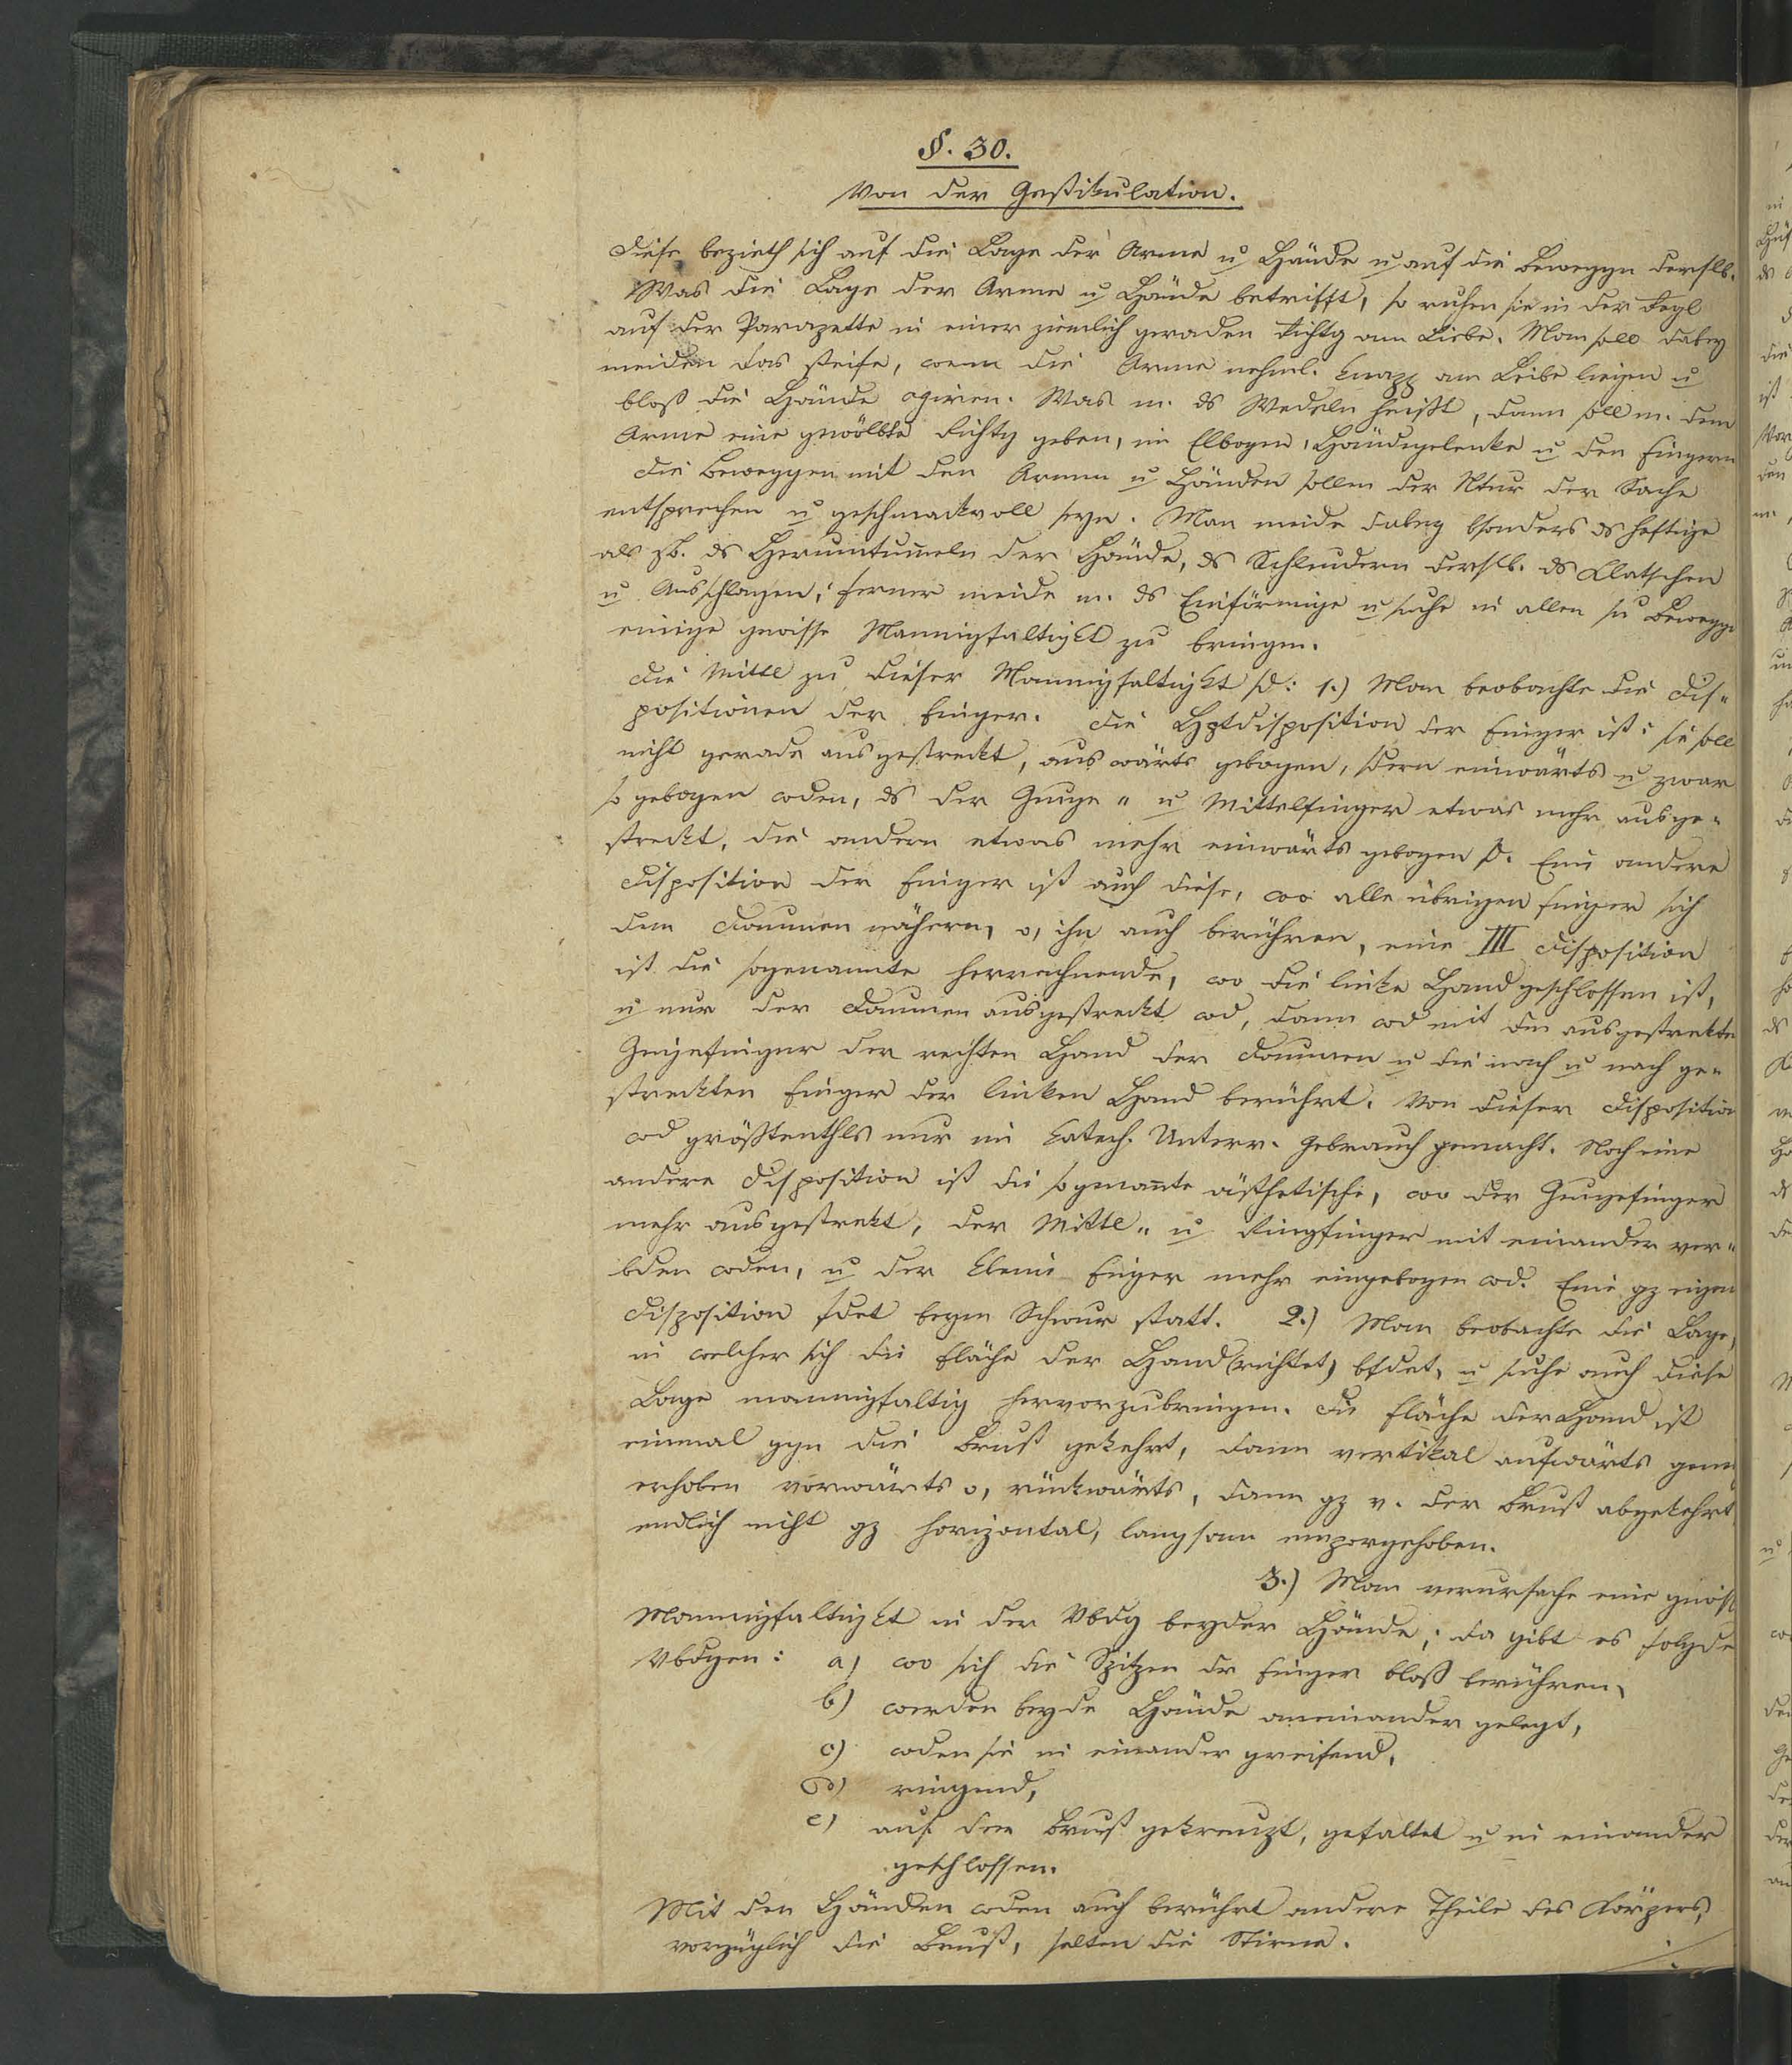 §. 30.
Von der Gestikulation.
Diese bezieth sich auf die Lage der Arme u Hände u auf die Beweggn derslb.
Was die Lage der Arme u Hände betrifft, so ruhen sie in der Regl
auf der Parapette in einer ziemlich geraden Richtg am Liebe. Man soll dabey
meiden das steife, wenn die Arme nehml. knapp am Leibe liegen u
bloß die Hände agiren. Was m. ds Wedeln heißt, dann soll m. dem
Arme eine gewölbte Richtg geben, im Elbogen, Händegelenke u den Fingern
Die Beweggen mit den Armen u Händen sollen der Ntur der Sache
entsprechen u geschmackvoll seyn. Man meide dabey bsonders ds heftige
als zb. ds Herumtum̅eln der Hände, ds Schleudern derslb. ds Klatschen
u Ausschlagen; ferner meide m. ds Einförmige u suche in allen su Bewegge
einige gewisse Mannigfaltigkt zu bringen.
Die Mittl zu dieser Mannigfaltigkt sd: 1.) Man beobachte die Dis-
positionen der Finger. Die Hptdisposition der Finger ist: sie soll
nicht gerade ausgestreckt, auswärts gebogen, sdern einwärts u zwar
so gebogen wden, ds der Zeige- u Mittelfinger etwas mehr ausge-
streckt, die andern etwas mehr einwärts gebogen sd. Eine andere
Disposition der Finger ist auch diese, wo alle übrigen Finger sich
dem Daumen nähern, o, ihn auch berühren, eine III Disposition
ist die sogenannte herrechnende, wo die linke Hand geschlossen ist,
u nur der Daumen ausgestreckt wd, dann wd mit dem ausgestrekten
Zeigefinger der rechten Hand der Daumen u die nach u nach ge-
streckten Finger der linken Hand berührt. Von dieser Disposition
wd größtenthls nur im katech. Unterr. Gebrauch gemacht. Noch eine
andere Disposition ist die sogenan̅te ästhetische, wo der Zeigefinger
mehr ausgestrekt, der Mittl- u Ringfinger mit einander ver-
bden wden, u der kleine Finger mehr eingebogen wd. Eine gz eigene
Disposition fdet beym Schwur statt. 2.) Man beobachte die Lage,
in welcher sich die Fläche der Hand (richtet) bfdet, u suche auch diese
Lage mannigfaltig hervorzubringen. Die Fläche der Hand ist
einmal ggn die Brust gekehrt, dann vertikal aufwärts
erhoben vorwärts o, rückwärts, dann gz v. der Brust abgekehrt
endlich nicht gz horizontal, langsam emporgehoben.
3.) Man verursache eine gwisse
Mannigfaltigkt in der Vbdg beyder Hände; da gibt es folgde
Vbdgen: a) wo sich die Spitzen dr Finger bloß berühren,
b) werden beyde Hände aneinander gelegt,
c) wden sie in einander greifend,
d) ringend,
e) auf der Brust gekreuzt, gefaltet u in einander
geschlossen.
Mit den Händen wden auch berührt andere Theile des Körpers,
vorzüglich die Brust, selten die Stirne.